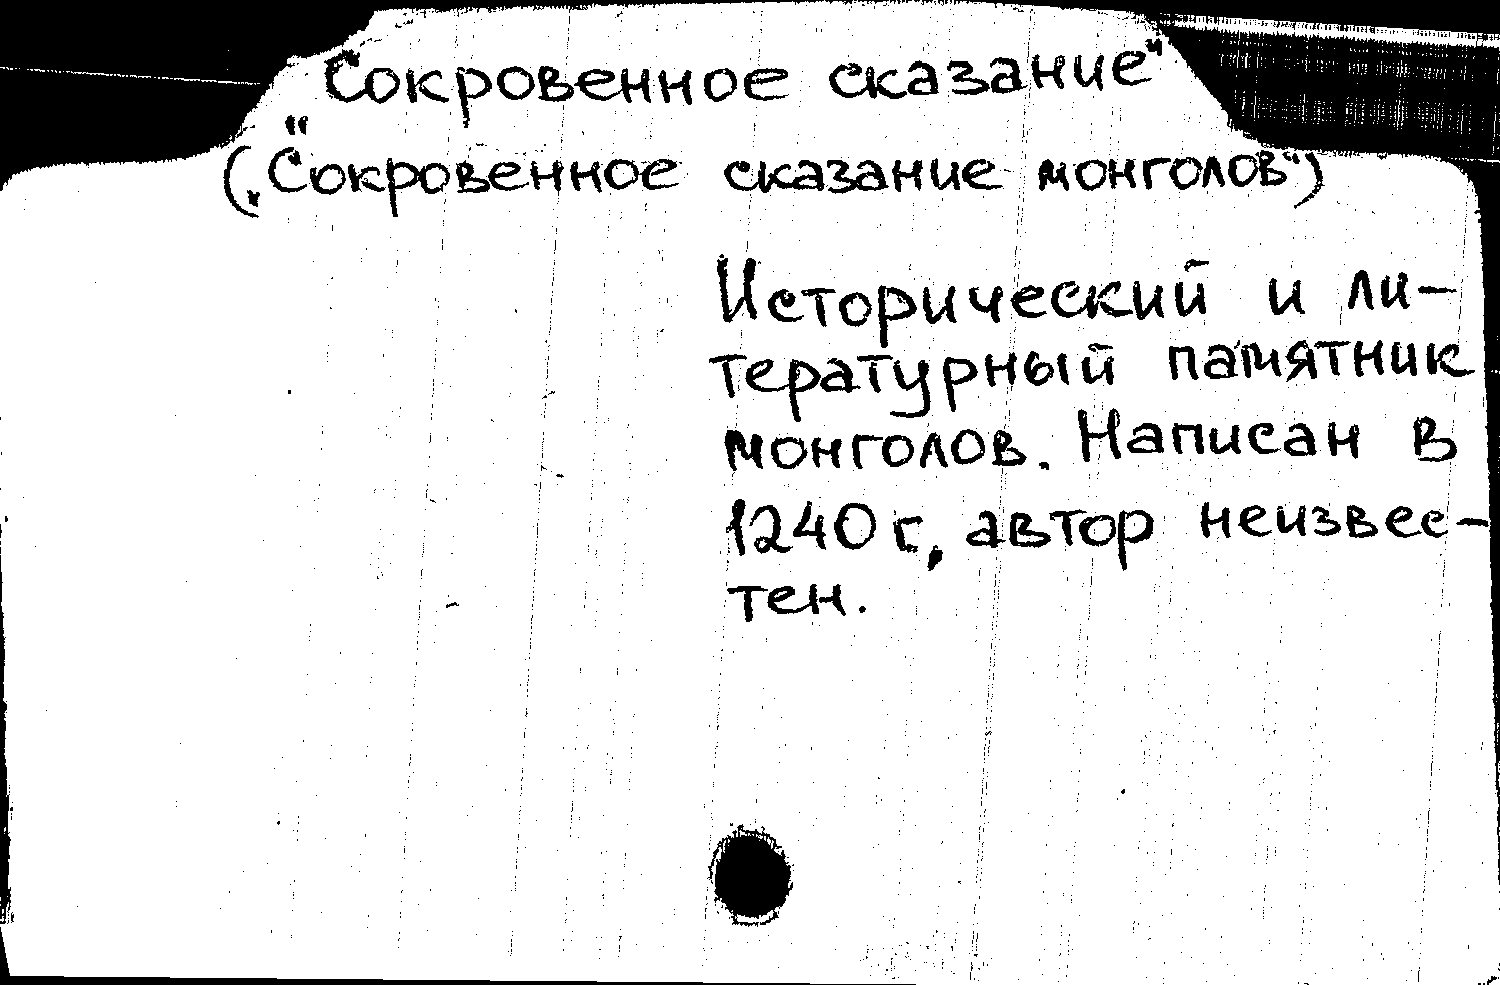 "Сокровенное сказание"
("Сокровенное сказание монголов")
Исторический и ли-
тературный памятник
монголов. Написан в
1240 г., автор неизвес-
тен.